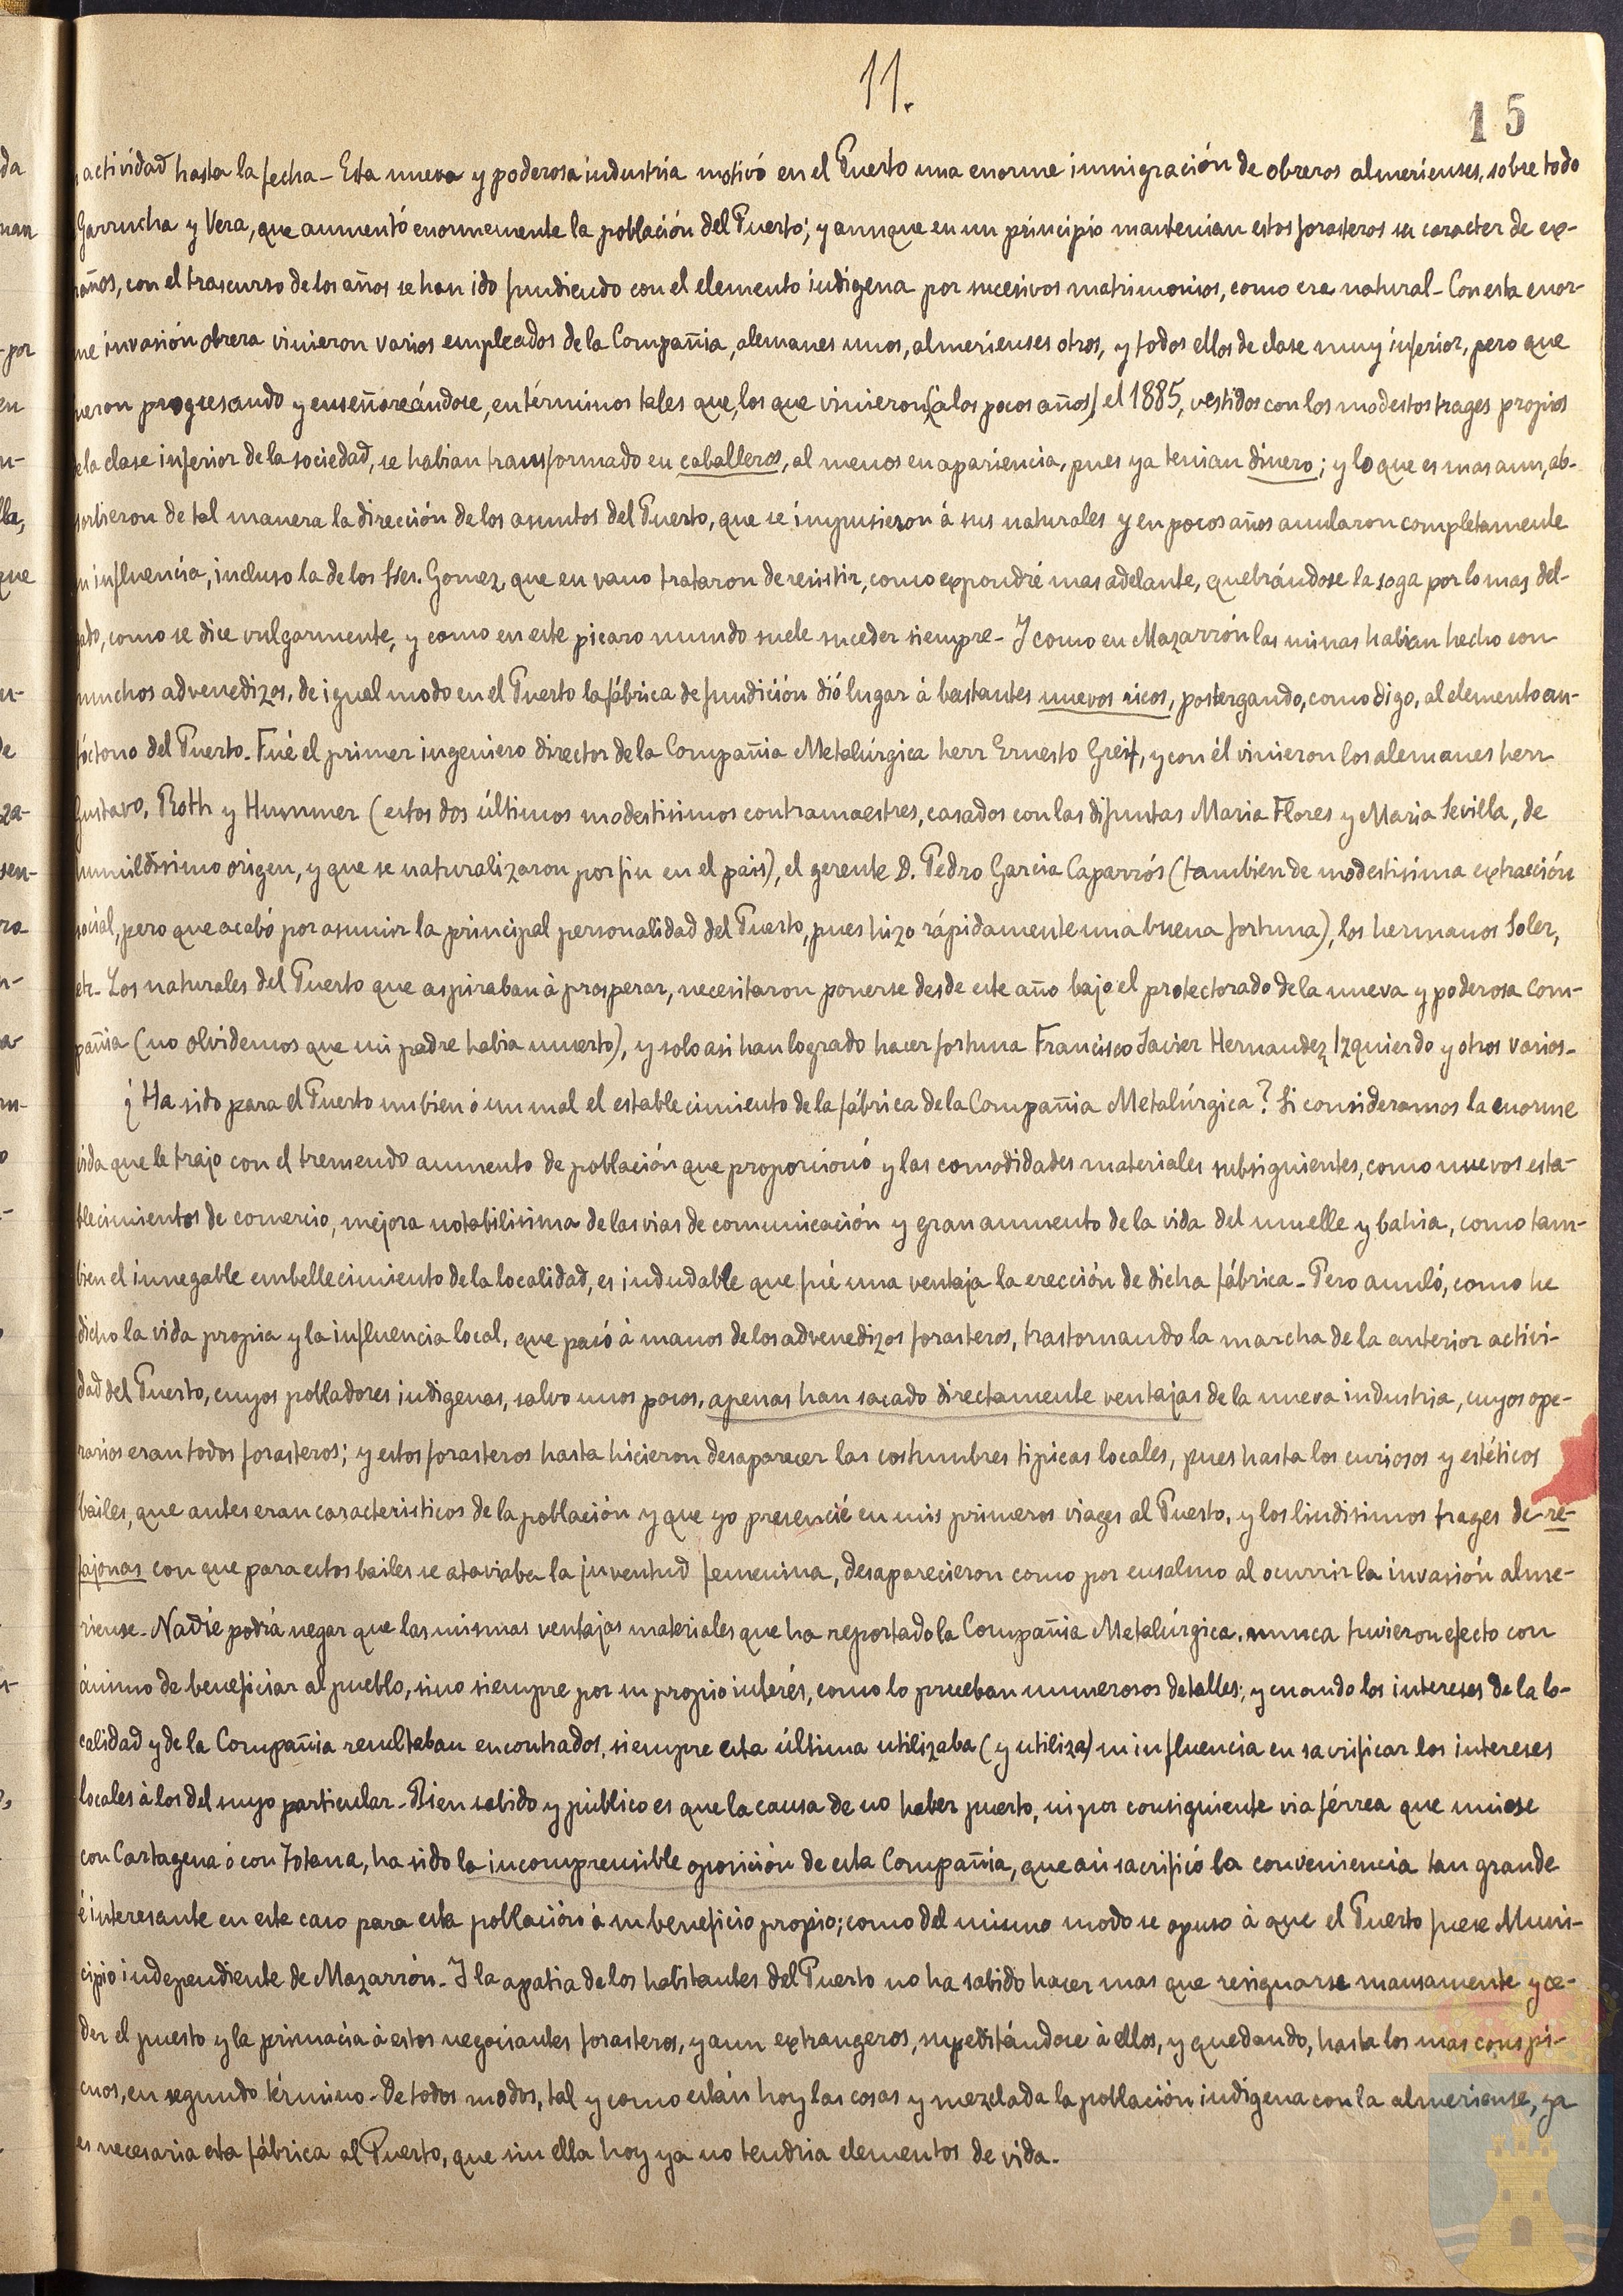 11.
15
actividad hasta la fecha - Esta nueva y poderosa industria motivó en el Puerto una enorme inmigración de obreros almerienses, sobre todo
Garrucha y Vera, que aumentó enormemente la población del Puerto; y aunque en un principio mantenian estos forasteros su caracter de ex-
raños, con el trascurso de los años se han ido fundiendo con el elemento indigena por sucesivos matrimonios, como era natural - Con esta enor-
me invasión obrera vinieron varios empleados de la Compañia, alemanes unos, almerienses otros, y todos ellos de clase muy inferior, pero que
ueron progresando y enseñoreándose, en términos tales que, los que vinieron (a los pocos años) el 1885, vestidos con los modestos trages propios
de la clase inferior de la sociedad, se habian transformado en caballeros, al menos en apariencia, pues ya tenian dinero; y lo que es mas aun, ab-
sorbieron de tal manera la dirección de los asuntos del Puerto, que se impusieron á sus naturales y en pocos años anularon completamente
su influencia, incluso la de los Sres. Gomez, que en vano trataron de resistir, como expondré mas adelante, quebrándose la soga por lo mas del-
gado, como se dice vulgarmente, y como en este picaro mundo suele suceder siempre - Y como en Mazarrón las minas habian hecho con
muchos advenedizos, de igual modo en el Puerto la fábrica de fundición dió lugar á bastantes nuevos ricos, postergando, como digo, al elemento au-
tóctono del Puerto. Fué el primer ingeniero director de la Compañia Metalúrgica herr Ernesto Greif, y con él vinieron los alemanes herr
Gustavo, Roth y Hummer (estos dos últimos modestisimos contramaestres, casados con las difuntas Maria Flores y Maria Sevilla, de
humildisimo origen, y que se naturalizaron por fin en el pais), el gerente D. Pedro Garcia Caparrós (tambien de modestisima extracción
social, pero que acabó por asumir la principal personalidad del Puerto, pues hizo rápidamente una buena fortuna), los hermanos Soler,
etc - Los naturales del Puerto que aspiraban á prosperar, necesitaron ponerse desde este año bajo el protectorado de la nueva y poderosa Com-
pañia (no olvidemos que mi padre habia muerto), y solo asi han logrado hacer fortuna Francisco Javier Hernandez Izquierdo y otros varios -
¿Ha sido para el Puerto un bien ó un mal el establecimiento de la fábrica de la Compañia Metalúrgica? Si consideramos la enorme
vida que le trajo con el tremendo aumento de población que proporcionó y las comodidades materiales subsiguientes, como nuevos esta-
blecimientos de comercio, mejora notabilisima de las vias de comunicación y gran aumento de la vida del muelle y bahia, como tam-
bien el innegable embellecimiento de la localidad, es indudable que fué una ventaja la erección de dicha fábrica - Pero anuló, como he
dicho la vida propia y la influencia local, que pasó á manos de los advenedizos forasteros, trastornando la marcha de la anterior activi-
dad del Puerto, cuyos pobladores indigenas, salvo unos pocos, apenas han sacado directamente ventajas de la nueva industria, cuyos ope-
rarios eran todos forasteros; y estos forasteros hasta hicieron desaparecer las costumbres tipicas locales, pues hasta los curiosos y estéticos
bailes, que antes eran caracteristicos de la población y que yo presencié en mis primeros viages al Puerto, y los lindisimos trages de re-
fajonas con que para estos bailes se ataviaba la juventud femenina, desaparecieron como por ensalmo al ocurrir la invasión alme-
riense - Nadie podrá negar que las mismas ventajas materiales que ha reportado la Compañia Metalúrgica, nunca tuvieron efecto con
ánimo de beneficiar al pueblo, sino siempre por su propio interés, como lo prueban numerosos detalles; y cuando los intereses de la lo-
calidad y de la Compañia resultaban encontrados, siempre esta última utilizaba (y utiliza) su influencia en sacrificar los intereses
locales á los del suyo particular - Bien sabido y público es que la causa de no haber puerto, ni por consiguiente via férrea que uniese
con Cartagena ó con Totana, ha sido la incomprensible oposición de esta Compañia, que asi sacrificó la conveniencia tan grande
é interesante en este caso para esta población á su beneficio propio; como del mismo modo se opuso á que el Puerto fuese Muni-
cipio independiente de Mazarrón - Y la apatia de los habitantes del Puerto no ha sabido hacer mas que resignarse mansamente y ce-
der el puesto y la primacia á estos negociantes forasteros, y aun extrangeros, supeditándose á ellos, y quedando, hasta los mas conspi-
cuos, en segundo término - De todos modos, tal y como están hoy las cosas y mezclada la población indigena con la almeriense, ya
es necesaria esta fábrica al Puerto, que sin ella hoy ya no tendria elementos de vida.